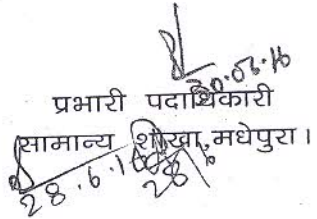 30.06.16
प्रभारी पदाधिकारी
सामान्य शाखा, मधेपुरा।
28.6.16